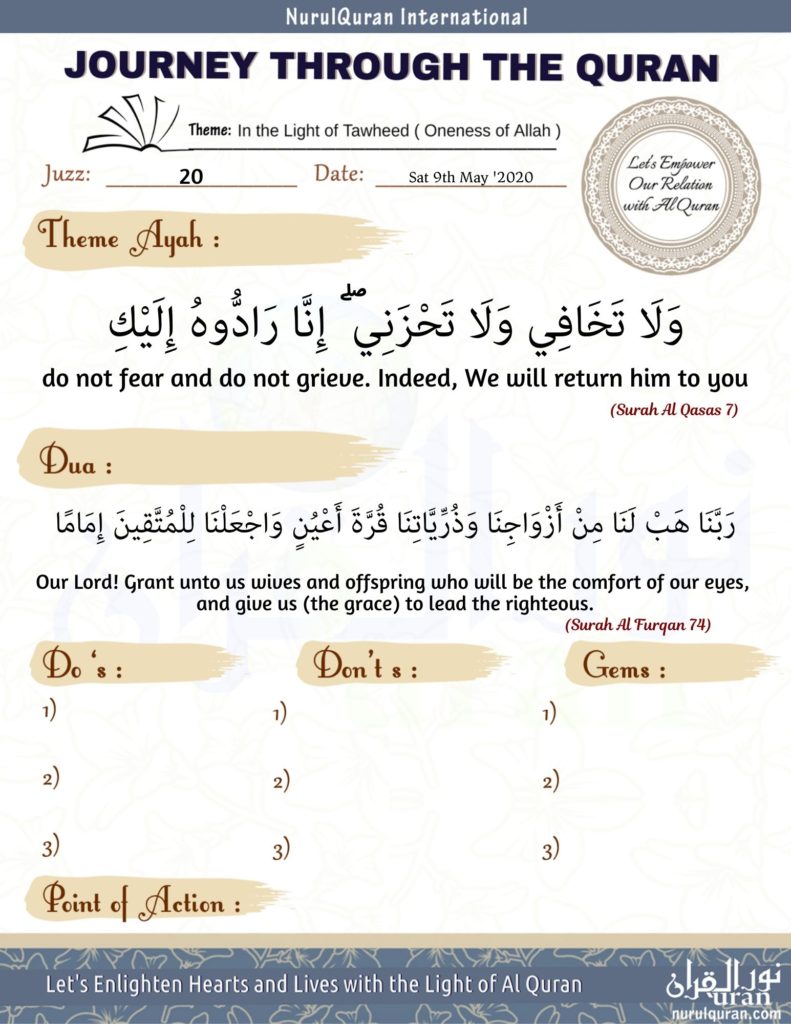 NurulQuran International
JOURNEY THROUGH THE QURAN
Theme: In the Light of Tawheed ( Oneness of Allah )
Let's Empower
Our Relation
with Al Quran
Juzz: 20 Date: Sat 9th May '2020
Theme Ayah :
وَلَا تَخَافِي وَلَا تَحْزَنِي ۖ إِنَّا رَادُّوهُ إِلَيْكِ
do not fear and do not grieve. Indeed, We will return him to you
(Surah Al Qasas 7)
Dua :
رَبَّنَا هَبْ لَنَا مِنْ أَزْوَاجِنَا وَذُرِّيَّاتِنَا قُرَّةَ أَعْيُنٍ وَاجْعَلْنَا لِلْمُتَّقِينَ إِمَامًا
Our Lord! Grant unto us wives and offspring who will be the comfort of our eyes,
and give us (the grace) to lead the righteous.
(Surah Al Furqan 74)
Do 's : Don't s : Gems :
1) 1) 1)
2) 2) 2)
3) 3) 3)
Point of Action :
Let's Enlighten Hearts and Lives with the Light of Al Quran
نور القرآن
uran
nurulquran.com